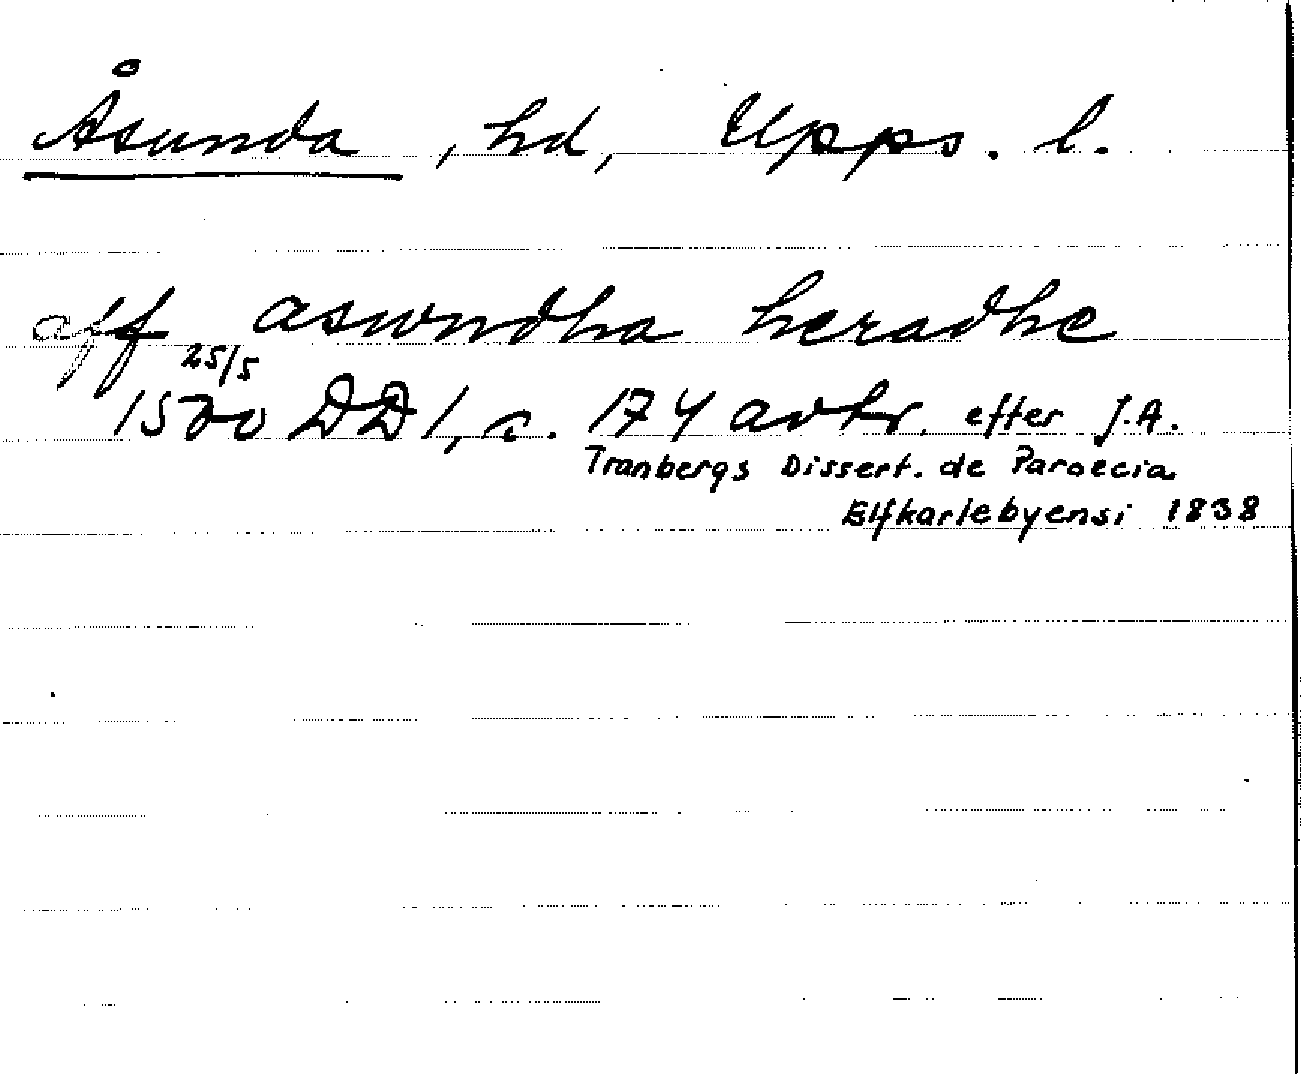 Åsunda, hd, Upps. l.
aff aswndha heradhe
25/5
1500 DD 1, s. 174 avkr. efter J.A.
Tranbergs Dissert. de Paroecia
Elfkarlebyensi 1838